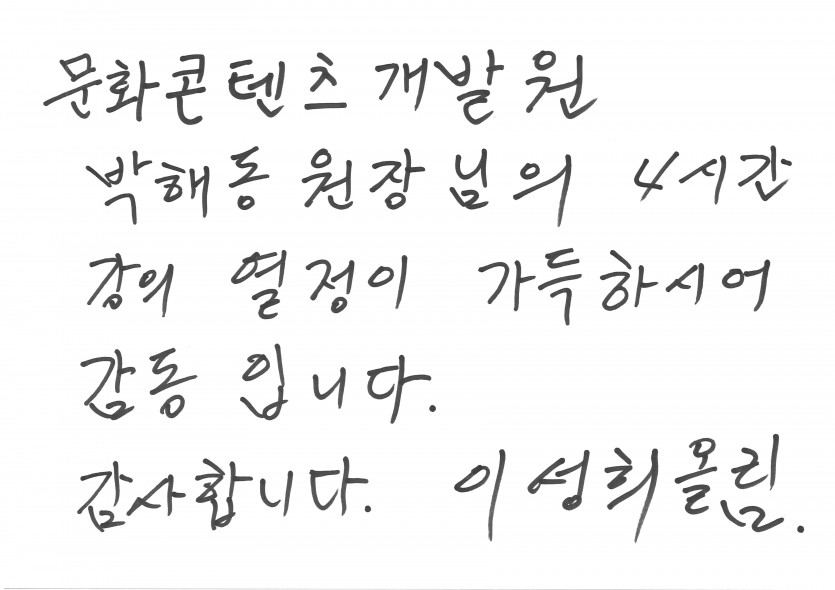 문화콘텐츠 개발원
박해동 원장님의 4시간
강의 열정이 가득하시어
감동 입니다.
감사합니다. 이성희올림.